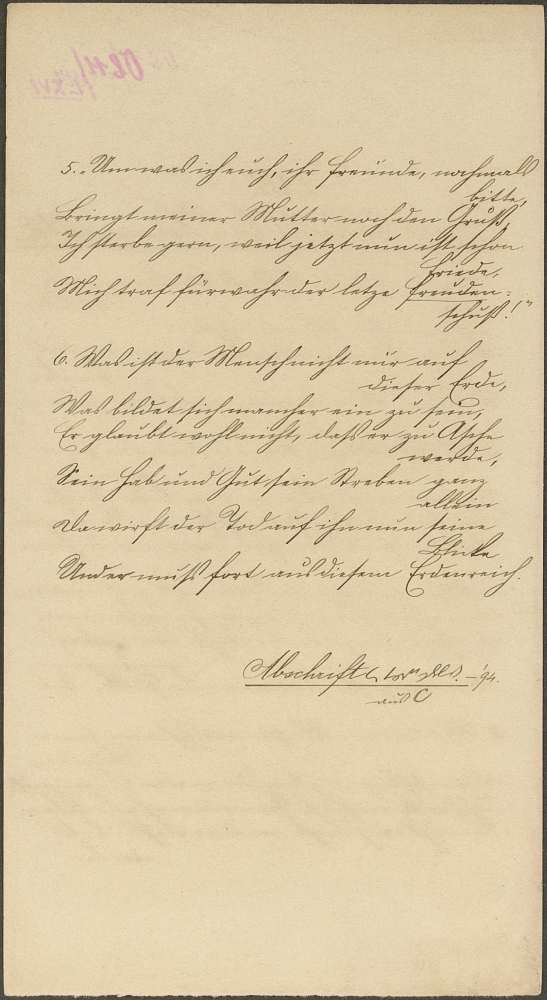 5. „Um was ich euch, ihr Freunde, nochmals
bitte,
Bringt meiner Mutter noch den Gruß,
Ich sterbe gern, weil jetzt nun ist schon
Friede,
Mich traf fürwahr der letze Freuden-
schuß!"
6. Was ist der Mensch nicht nur auf
dieser Erde,
Was bildet sich mancher ein zu sein,
Er glaubt wohl nicht, daß er zu Asche
werde,
Sein Hab und Gut sein Streben ganz
allein
Da wirft der Tod auf ihn nun seine
Blicke
Und er muß fort aus diesem Erdenreich.
Abschrift '94.
aus C